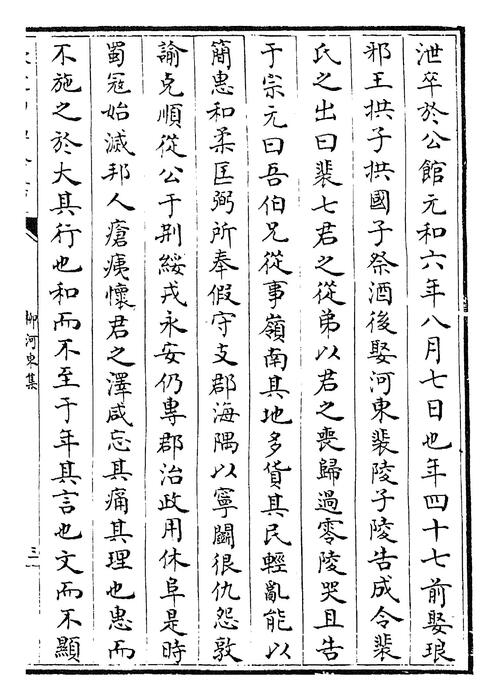 泄卒於公館元和六年八月七日也年四十七前娶琅
邪王拱子拱國子祭酒後娶河東裴陵子陵告成令裴
氏之出曰裴七君之從弟以君之喪歸過零陵哭且告
于宗元曰吾伯兄從事嶺南其地多貨其民輕亂能以
簡惠和柔匡弼所奉假守支郡海隅以寧鬬很仇怨敦
諭克順從公于荆綏戎永安仍專郡治政用休阜是時
蜀冦始滅邦人瘡痍懷君之澤咸忘其痛其理也惠而
不施之於大其行也和而不至于年其言也文而不顯
柳河東集
三